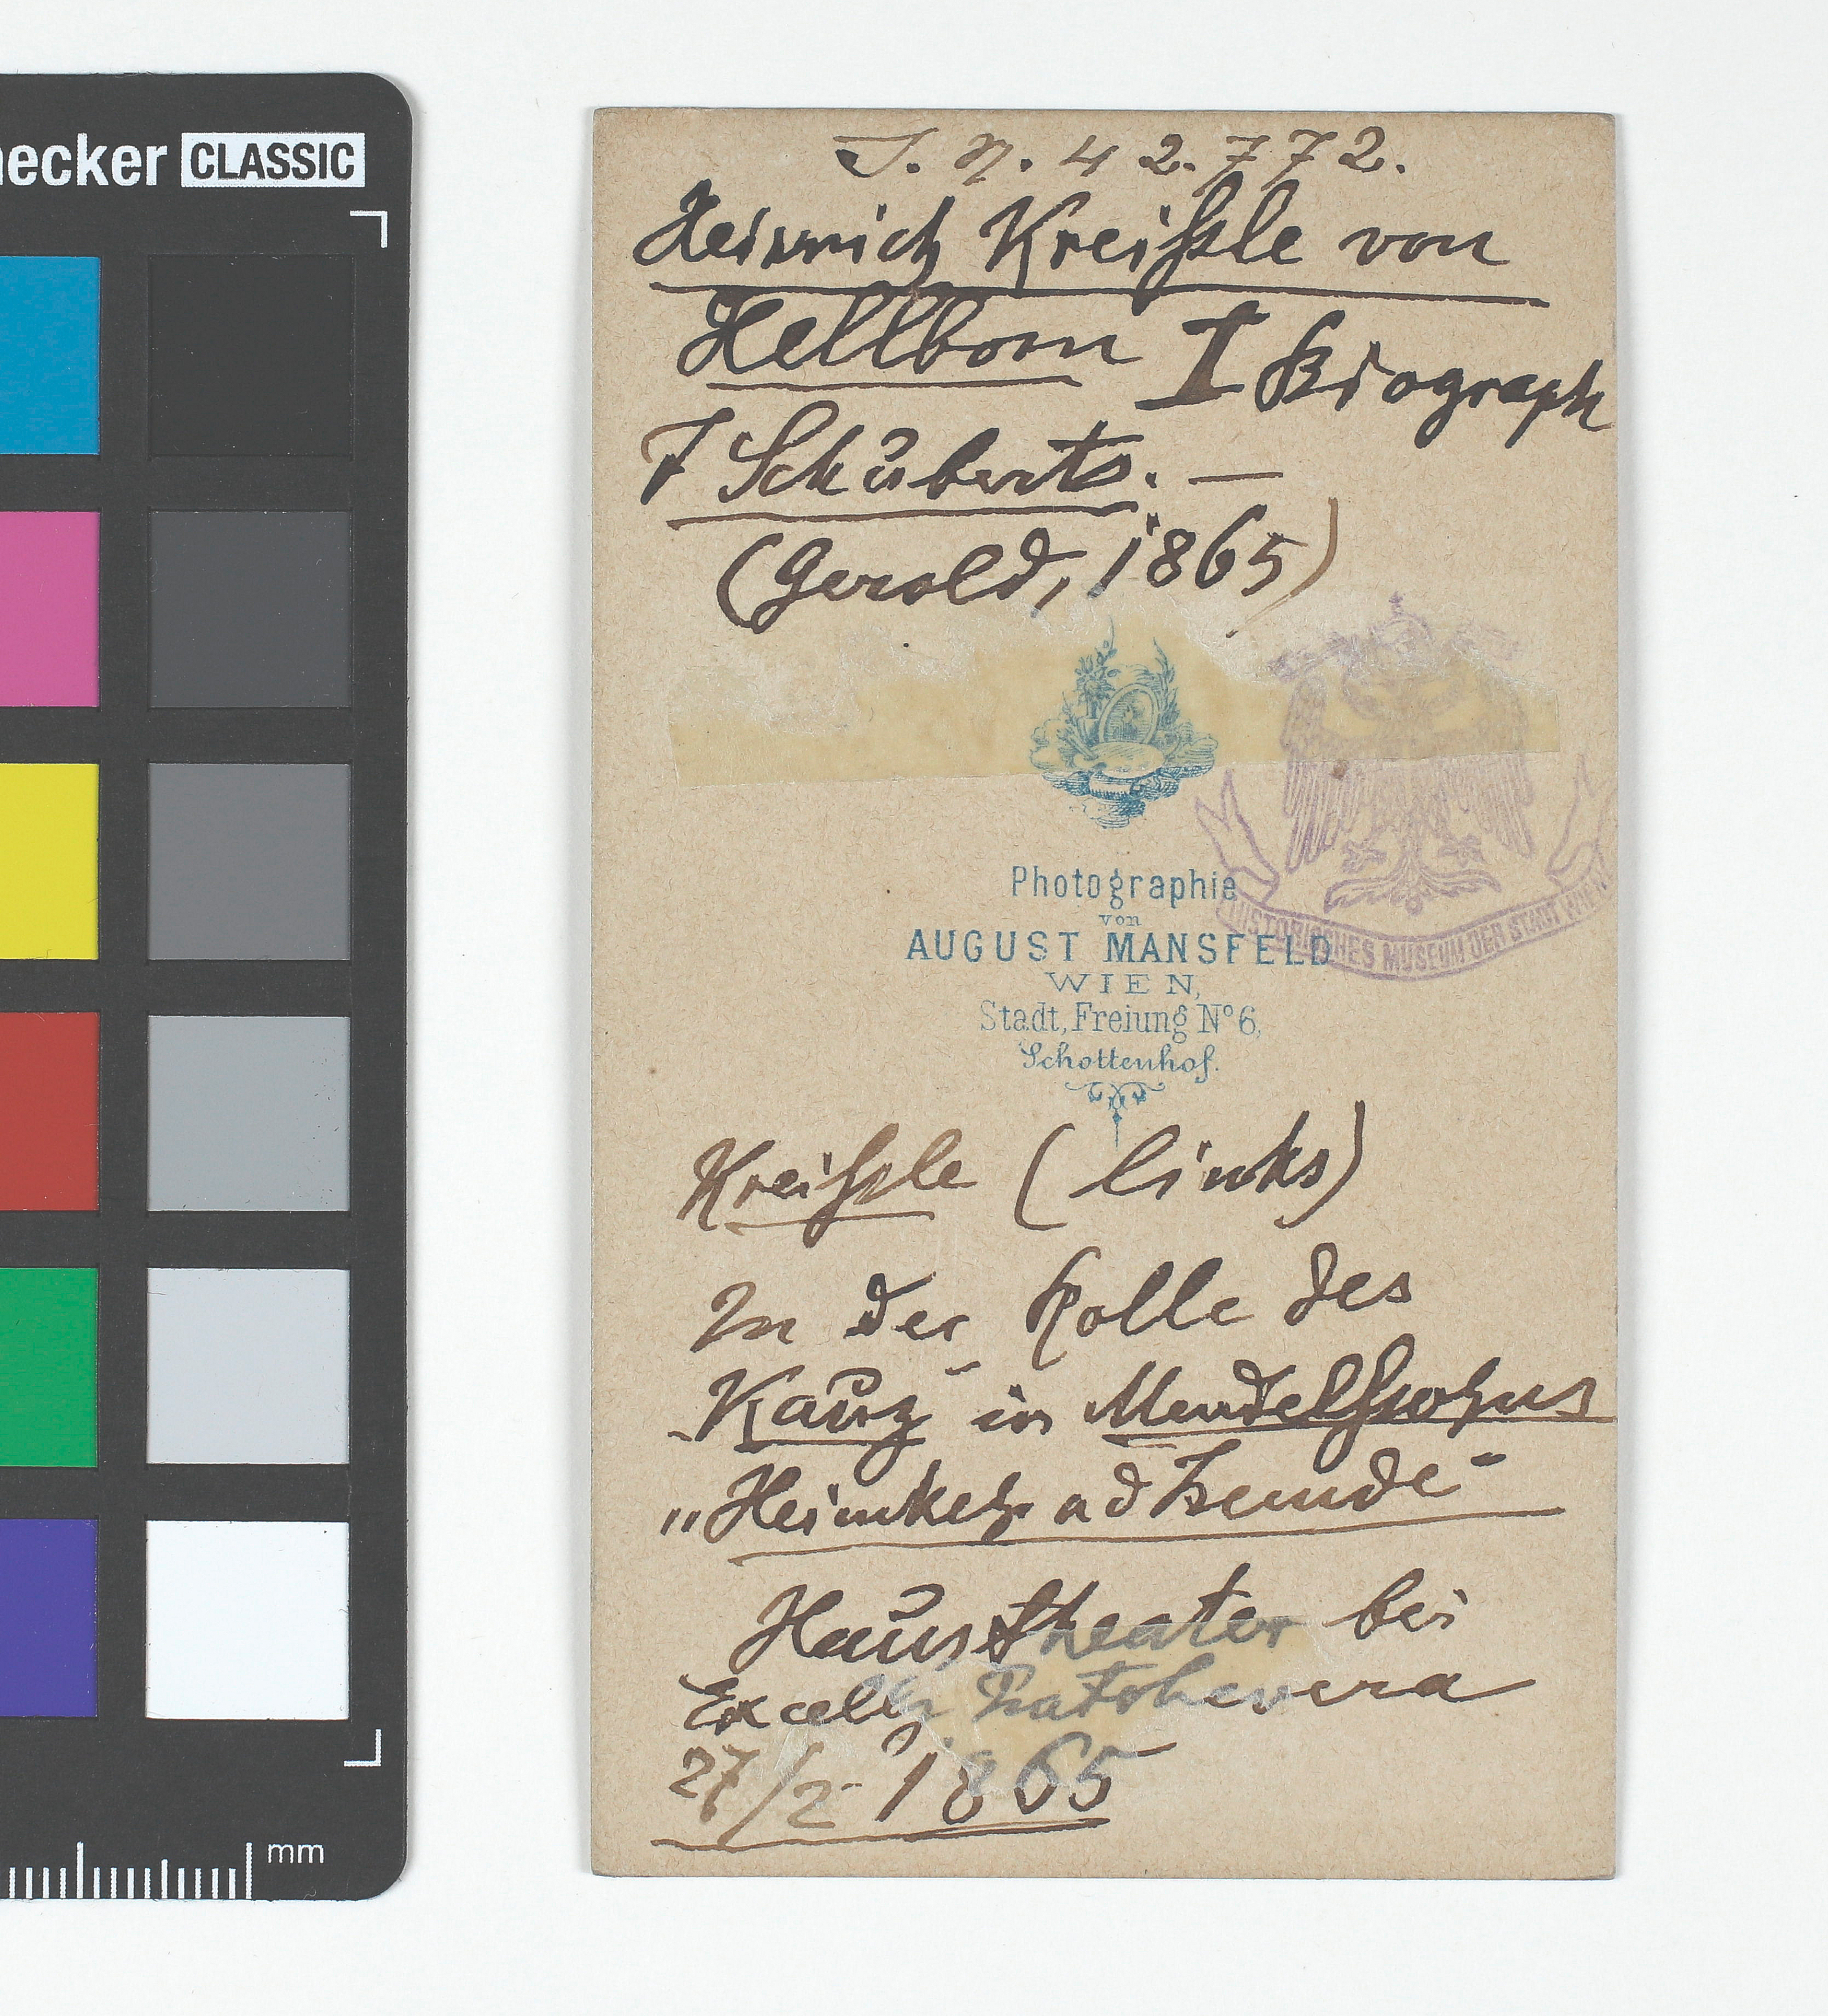 ecker CLASSIC
J. N. 42.772.
Heinrich Kreißle von
Hellborn I Biograph
F Schuberts. —
(Gerold, 1865)
Photographie
von
AUGUST MANSFELD
WIEN,
Stadt, Freiung N° 6,
Schottenhof.
HISTORISCHES MUSEUM DER STADT WIEN
Kreißle (links)
In der Rolle des
Kauz in Mendelssohns
„Heimkehr a d Fremde"
Haustheater bei
Excell Pratobevera
27/2 1865
mm